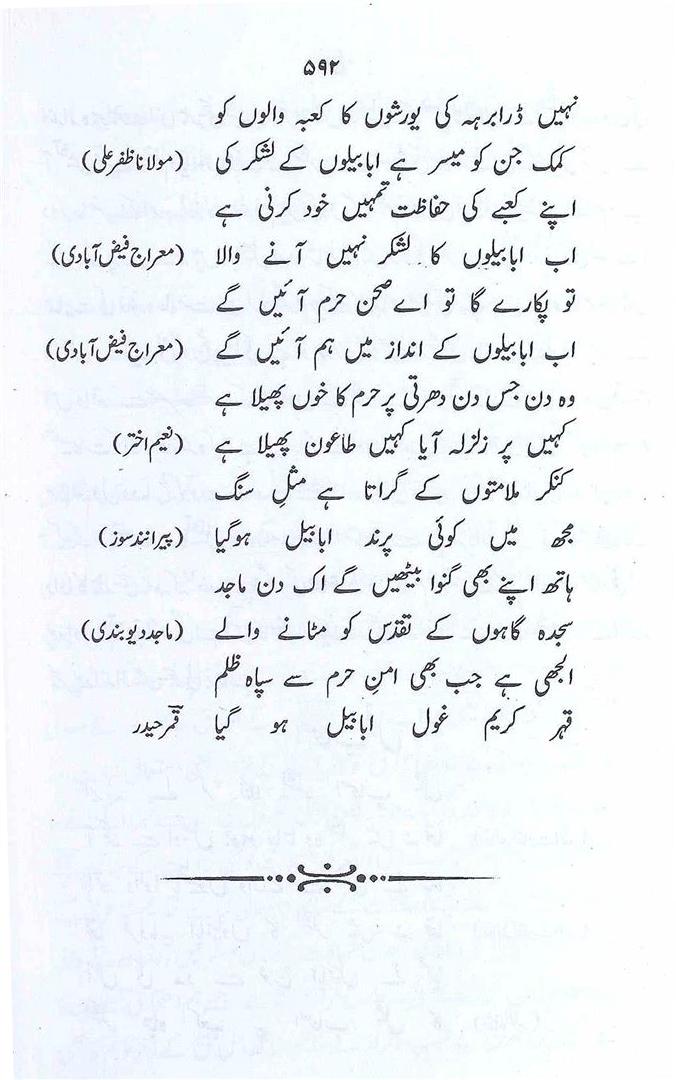 ۵۹۲
نہیں ڈر ابرہہ کی یورشوں کا کعبہ والوں کو
کمک جن کو میسر ہے ابابیلوں کے لشکر کی (مولانا ظفر علی)
اپنے کعبے کی حفاظت تمہیں خود کرنی ہے
اب ابابیلوں کا لشکر نہیں آنے والا (معراج فیض آبادی)
تو پکارے گا تو اے صحن حرم آئیں گے
اب ابابیلوں کے انداز میں ہم آئیں گے (معراج فیض آبادی)
وہ دن جس دن دھرتی پر حرم کا خوں پھیلا ہے
کہیں پر زلزلہ آیا کہیں طاعون پھیلا ہے (نعیم اختر)
کنکر ملامتوں کے گراتا ہے مثلِ سنگ
مجھ میں کوئی پرند ابابیل ہوگیا (پیرانند سوز)
ہاتھ اپنے بھی گنوا بیٹھیں گے اک دن ماجد
سجدہ گاہوں کے تقدّس کو مٹانے والے (ماجد دیوبندی)
الجھی ہے جب بھی امنِ حرم سے سپاہ ظلم
قہر کریم غول ابابیل ہو گیا قمر حیدر